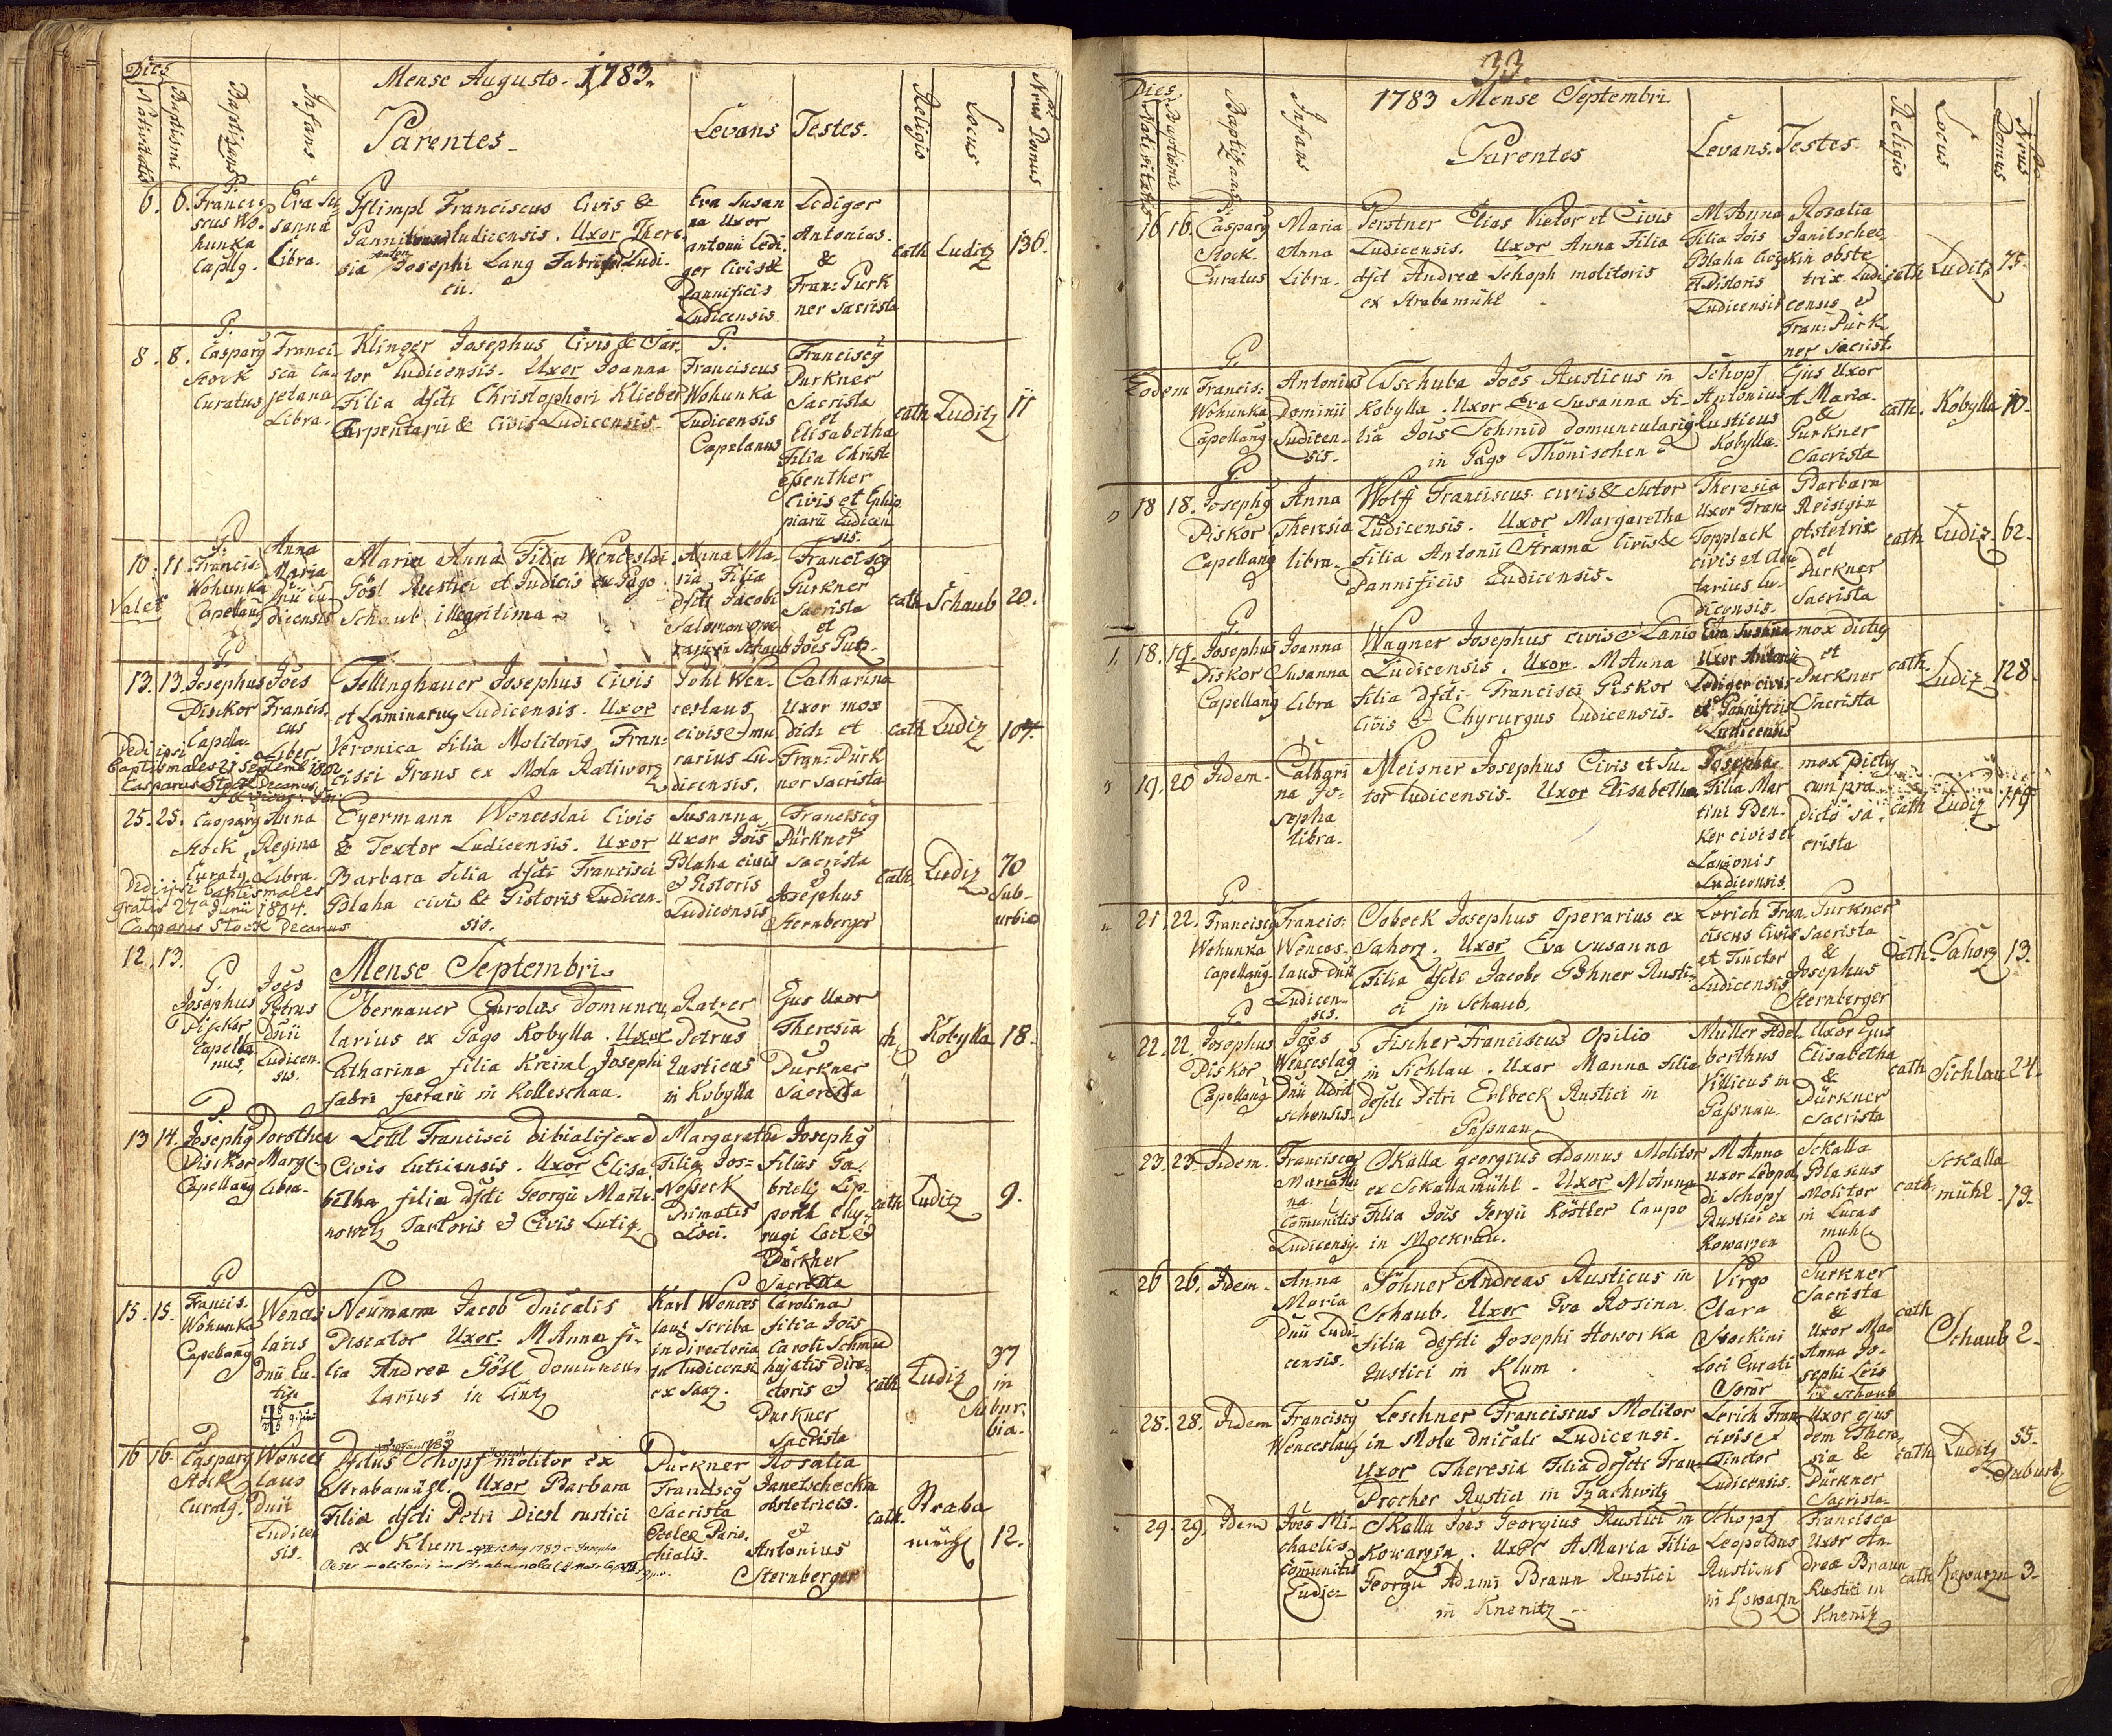 Mense Augusto. 1783.
Dies
Nativitatis
Baptismi
Baptizans
Infans
Parentes
Levans
Testes.
Religio
Locus
Nrus Domus
6. 6.
P. Francis
cus Wo-
hunka
Capllg.
Eva Su
sanna
Libra.
Franciscus Civis &
Ludicensis. Uxor There
sia Josephi Lang Fabri Ludi-
cii.
Eva Susan
na Uxor
antonii Ledi
ger Civis &
Pannificis
Ludicensis
Lediger
Antonius.
&
Fran: Purk
ner Sacrista
cath
Luditz
136.
8. 8.
P.
Casparg
Stock
Curatus
Franci
sca Ca-
jetana
Libra.
Klinger Josephus Civis & Sar-
tor Ludicensis. Uxor Joanna
Filia dfcti Christophori Klieber
Carpentarii & Civis Ludicensis.
P.
Franciscus
Wohunka
Ludicensis
Capelanus
Franciscg
Purkner
Sacrista
et
Elisabetha
Filia Christ
Esenther
Civis et Ephip
piarii Ludicen
sis.
cath
Luditz
11
10. 11.
Valet
P.
Francis
Wohunka
Capellang
Anna
Maria
Dnii Lu
dicensis
Maria Anna Filia Wenceslai
Gösl Rustici et Judicis ex Pago
Schaub illegitima
Anna Ma-
ria Filia
dfcti Jacobi
Salomon ope
Schaub
Franciscg
Purkner
Sacrista
et
Joës Putz
cath
Schaub
20.
13. 13.
P.
Josephus
Piskor
Capella-
Joës
Francis-
cus
Liber
Dedi ipsi
Baptismales 21 Septemb 1802
Casparus Stock Decanus
Fellinghauer Josephus Civis
et Laminarius Ludicensis. Uxor
Veronica filia Molitoris Fran-
cisci Grans ex Mola Ratiworz
Pohl Wen-
ceslaus
civis & mu
rarius Lu-
dicensis.
Catharina
Uxor mox
dicti et
Fran: Purk
ner Sacrista
cath
Ludiz
107.
25. 25.
Casparg
Stock
Curatg
Anna
Regina
Libra.
Dedi ipsi baptismales
gratis 27 Junii 1804.
Casparus Stock Decanus
Eyermann Wenceslai Civis
& Textor Ludicensis. Uxor
Barbara filia dfcti Francisci
Blaha civis & Pistoris Ludicen-
sis.
Susanna
Uxor Jois
Blaha civis
& Pistoris
Ludicensis
Franciscg
Pürkner
Sacrista
&
Josephus
Sternberger
cath
Ludiz
70
Sub-
urbia
Mense Septembri.
12. 13.
P.
Josephus
Piskor
Capella
nus.
Joës
Petrus
Dnii
Ludicen-
sis.
Obernauer Carolus Domuncu
larius ex Pago Kobylla. Uxor
Catharina filia Kreiml Josephi
fabri ferrarii in Kolleschau.
Ratzer
Petrus
Rusticus
in Kobylla
Ejus Uxor
Theresia
&
Purkner
Sacrista
Kobylla
18.
13 14.
P
Josephg
Piskor
Capellang
Dorothea
Marg
Libra.
Lettl Francisci
Civis Luticensis. Uxor Elisa
betha filia dfcti Georgii Marti-
nowetz Sartoris & Civis Lutiz
Margaretha
Filia Jos=
Nosseck
Primatis
Loci.
Josephg
filius Ga-
brielis Lip-
perth Chy-
rugi Loci &
Pürkner
Sacrista
cath
Luditz
9.
15. 15.
P
Francis.
Wohunka
Capellang
Wences
laus
Dnii Lu-
tiz
Neümann Jacob dnicalis
Piscator Uxor. M Anna fi-
lia Andreæ Gösl domuncu
larius in Lintz
Karl Wences
laus Scriba
in directoria
Ludicensi
ex Saaz.
Carolina
filia Jois
Caroli Schmied
hujatis dire-
ctoris &
Purkner
Sacrista
cath
Ludiz
37
in
Subur-
bia.
16 16.
P
Casparg
Stock
Curatg.
Wences
laus
Dnii
Ludicen
sis.
Schopf molitor ex
Strabamühl. Uxor Barbara
Filia dfcti Petri Diesl rustici
ex Klum
Purkner
Franciscg
Sacrista
Ecclæ Paro-
chialis.
Rosalia
Janetschecka
obstetricis.
&
Antonius
Sternberger
cath.
Straba
mühl
12.
33.
1783 Mense Septembri
Dies
Nativitatis
Baptismi
Baptisans
Infans
Parentes
Levans.
Testes.
Religio
Locus
Nrus Domus
16 16.
P
Casparg
Stock
Curatus
Maria
Anna
Libra.
Perstner Elias Vietor et Civis
Ludicensis. Uxor Anna Filia
dfct Andreæ Schoph molitoris
ex Strabamühl
M Anna
Filia Jois
Blaha Civis
et Pistoris
Ludicensis
Rosalia
Janitschec
kin obste
trix Ludi
censis &
Fran: Purk
ner Sacrist.
cath
Luditz
75.
Eodem
P.
Francis:
Wohunka
Capellang
Antonius
Dominii
Ludicen-
sis.
Tschuba Joës Rusticus in
Kobylla. Uxor Eva Susanna Fi-
lia Jois Schmid domuncularig
in Pago Thönischen
Schopf
Antonius
Rusticus
Kobylla.
Ejus Uxor
A Maria.
&
Purkner
Sacrista
cath.
Kobylla
10.
18 18.
P.
Josephg
Piskor
Capellang
Anna
Theresia
libra.
Wolff Franciscus civis & Sutor
Ludicensis. Uxor Margaretha
filia Antonii Strama Civis &
Pannificis Ludicensis.
Theresia
Uxor Fran
Topplack
civis et
Lu-
dicensis.
Barbara
Reisigin
obstetrix
et
Purkner
Sacrista
cath
Ludiz.
62.
18. 19.
P.
Josephus
Piskor
Capellang
Joanna
Susanna
Libra
Wagner Josephus civis & Lanio
Ludicensis. Uxor M Anna
filia dfcti Francisci Piskor
Civis & Chyrurgus ludicensis.
Eva Susanna
Uxor Antonii
Lediger civis
et Pannificis
Ludicensis
mox dictg
et
Purkner
Sacrista
cath
Ludiz
128.
19. 20
Idem.
Cathari
na Jo-
sepha
libra.
Meisner Josephus Civis et Su-
tor ludicensis. Uxor Elisabetha
Josepha
Filia Mar
tini
civis et
Lanionis
Ludicensis.
mox dictg
cum præ
dicto Sa-
crista
cath
Ludiz
119
21. 22.
P.
Franciscg
Wohunka
Capellang
Francis:
Wences-
laus dnii
Ludicen-
sis.
Sobeck Josephus Operarius ex
Sahorz. Uxor Eva Susanna
Filia dfcti Jacobi Pöhner Rusti-
ci in Schaub.
Lerich Fran
ciscus Civis
et Tinctor
Ludicensis
Purkner
Sacrista
&
Josephus
Sternberger
cath.
Sahorz
13.
22. 22.
P
Josephus
Piskor
Capellang
Joës
Wenceslag
Dnii Udrit
schensis.
Fischer Franciscus Opilio
in Sichlau. Uxor Manna filia
defcti Petri Erlbeck Rustici in
Passnau.
Müller Adel-
berthus
Villicus in
Passnau.
Uxor Ejus
Elisabetha
&
Pürkner
Sacrista
cath
Sichlau
24.
23. 23.
Idem.
Franciscg
Maria
na.
Comunitis
Ludicensis.
Skalla georgius Adamus Molitor
ex Sckallamühl. Uxor M Anna
Filia Jois Jergii Köstler Caupo
in Mockrau.
M Anna
uxor Leopol
di Schopf
Rustici ex
Kowarzen
Sckalla
Blasius
Molitor
in Lucas
muhl
cath.
Sckalla
mühl.
19.
26 26.
Idem.
Anna
Maria
Dnii Ludi-
censis.
Pöhner Andreas Rusticus in
Schaub. Uxor Eva Rosina
Filia defcti Josephi Howorka
Rustici in Klum.
Virgo
Clara
Stockini
Loci Curati
Soror
Purkner
Sacrista
&
Uxor Ma-
Anna Jo-
sephi Leis
ex Schaub
cath
Schaub
2.
28. 28.
Idem
Franciscg
Wenceslaus
Leschner Franciscus Molitor
in Mola dnicali Ludicensi.
Uxor Theresia Filia defcti Fran
Procher Rustici in Tschachwitz
Lerich Fran
civis et
Tinctor
Ludicensis.
Uxor ejus
dem There
sia &
Pürkner
Sacrista.
cath
Luditz
Suburb
55.
29. 29.
Idem
Joës Mi-
chaelis
Comunitis
Ludic-
Skalla Joës Georgius Rustici in
Kowarzin. Uxor A Maria Filia
Georgii Adami Braun Rustici
in Knenitz
Schopf
Leopoldus
Rusticus
in Kowarzn
Francisca
Uxor An-
dreæ Braun
Rustici in
Knenitz
cath
Kowarzn
3.